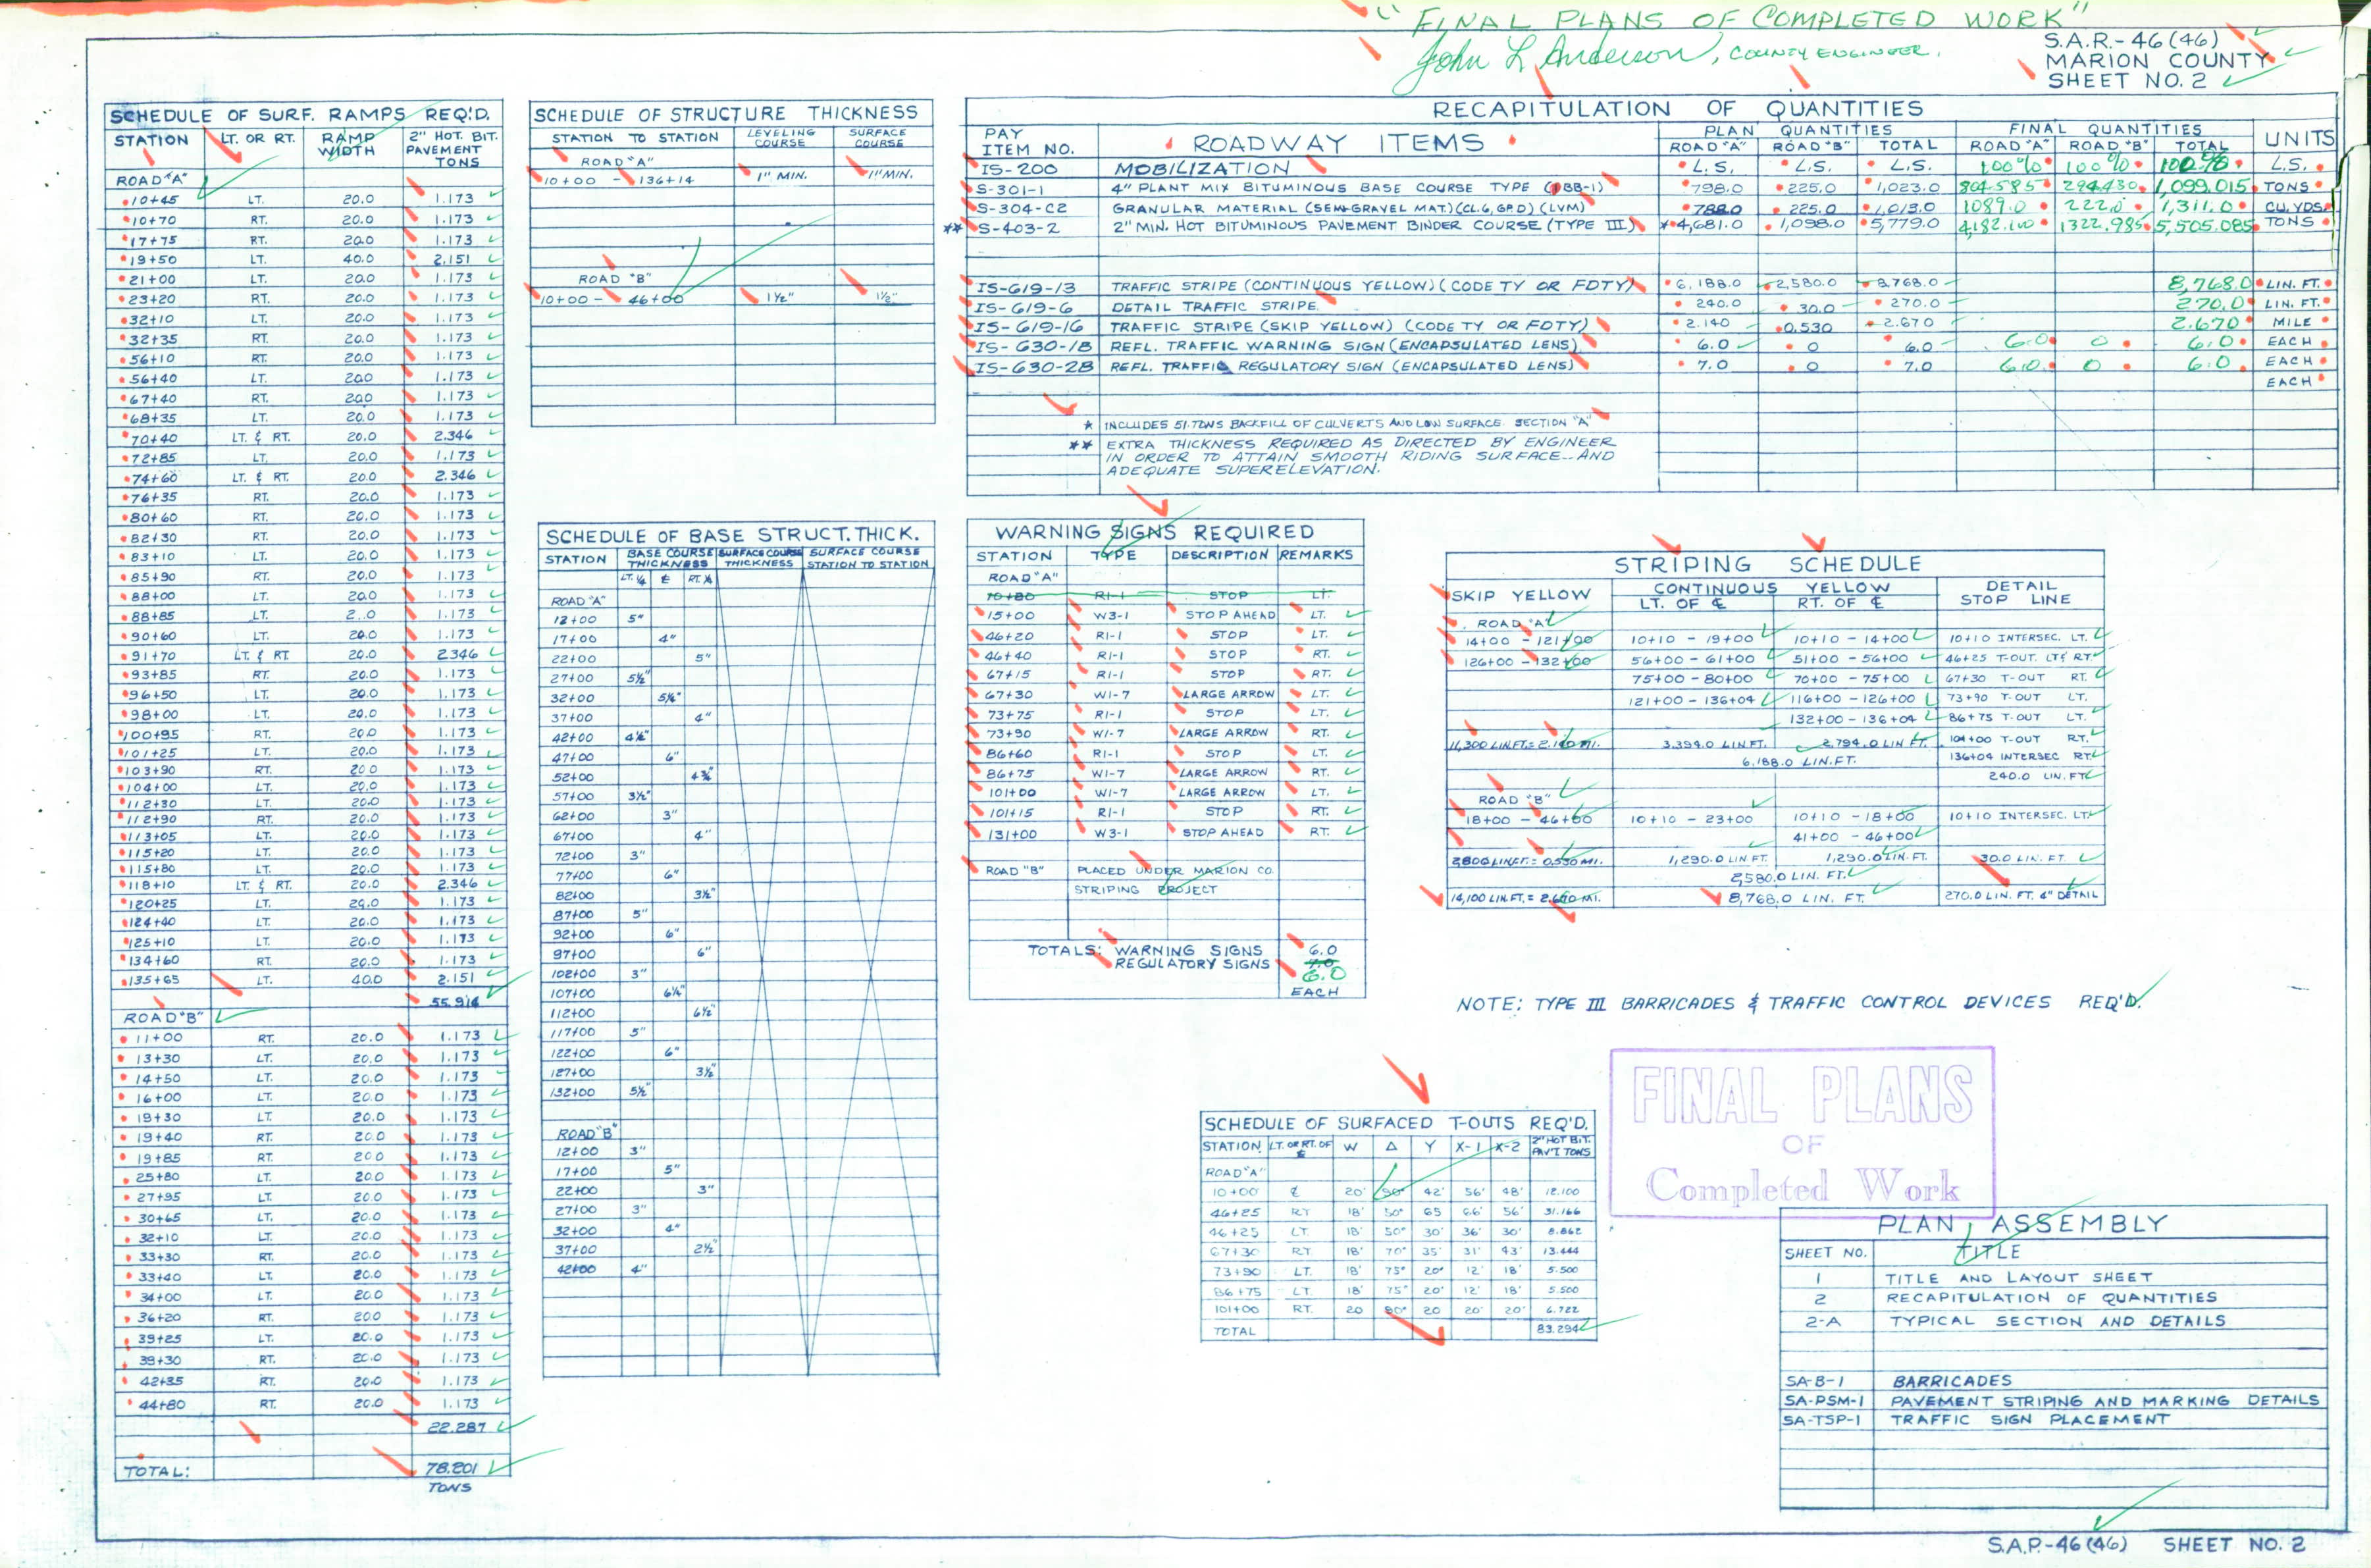 "FINAL PLANS OF COMPLETED WORK"
John L Anderson, COUNTY ENGINEER.
S.A.R.-46(46)
MARION COUNTY
SHEET NO. 2
SCHEDULE OF SURF. RAMPS REQ'D.
STATION LT. OR RT. RAMP WIDTH 2" HOT. BIT. PAVEMENT TONS
ROAD "A"
10+45 LT. 20.0 1.173
10+70 RT. 20.0 1.173
17+75 RT. 20.0 1.173
19+50 LT. 40.0 2.151
21+00 LT. 20.0 1.173
23+20 RT. 20.0 1.173
32+10 LT. 20.0 1.173
32+35 RT. 20.0 1.173
56+10 RT. 20.0 1.173
56+40 LT. 20.0 1.173
67+40 RT. 20.0 1.173
68+35 LT. 20.0 1.173
70+40 LT. & RT. 20.0 2.346
72+85 LT. 20.0 1.173
74+60 LT. & RT. 20.0 2.346
76+35 RT. 20.0 1.173
80+60 RT. 20.0 1.173
82+30 RT. 20.0 1.173
83+10 LT. 20.0 1.173
85+90 RT. 20.0 1.173
88+00 LT. 20.0 1.173
88+85 LT. 2.0 1.173
90+60 LT. 20.0 1.173
91+70 LT. & RT. 20.0 2.346
93+85 RT. 20.0 1.173
96+50 LT. 20.0 1.173
98+00 LT. 20.0 1.173
100+95 RT. 20.0 1.173
101+25 LT. 20.0 1.173
103+90 RT. 20.0 1.173
104+00 LT. 20.0 1.173
112+30 LT. 20.0 1.173
112+90 RT. 20.0 1.173
113+05 LT. 20.0 1.173
115+20 LT. 20.0 1.173
115+80 LT. 20.0 1.173
118+10 LT. & RT. 20.0 2.346
120+25 LT. 20.0 1.173
124+40 LT. 20.0 1.173
125+10 LT. 20.0 1.173
134+60 RT. 20.0 1.173
135+65 LT. 40.0 2.151
55.914
ROAD "B"
11+00 RT. 20.0 1.173
13+30 LT. 20.0 1.173
14+50 LT. 20.0 1.173
16+00 LT. 20.0 1.173
19+30 LT. 20.0 1.173
19+40 RT. 20.0 1.173
19+85 RT. 20.0 1.173
25+80 LT. 20.0 1.173
27+95 LT. 20.0 1.173
30+65 LT. 20.0 1.173
32+10 LT. 20.0 1.173
33+30 RT. 20.0 1.173
33+40 LT. 20.0 1.173
34+00 LT. 20.0 1.173
36+20 RT. 20.0 1.173
39+25 LT. 20.0 1.173
39+30 RT. 20.0 1.173
42+35 RT. 20.0 1.173
44+80 RT. 20.0 1.173
22.287
TOTAL: 78.201
TONS
SCHEDULE OF STRUCTURE THICKNESS
STATION TO STATION LEVELING COURSE SURFACE COURSE
ROAD "A"
10+00 - 136+14 1" MIN. 1" MIN.
ROAD "B"
10+00 - 46+00 1½" 1½"
SCHEDULE OF BASE STRUCT. THICK.
STATION BASE COURSE THICKNESS SURFACE COURSE THICKNESS SURFACE COURSE STATION TO STATION
LT. ¼ ℄ RT. ¼
ROAD "A"
12+00 5"
17+00 4"
22+00 5"
27+00 5½"
32+00 5¼"
37+00 4"
42+00 4½"
47+00 6"
52+00 4¾"
57+00 3½"
62+00 3"
67+00 4"
72+00 3"
77+00 6"
82+00 3½"
87+00 5"
92+00 6"
97+00 6"
102+00 3"
107+00 6¼"
112+00 6½"
117+00 5"
122+00 6"
127+00 3½"
132+00 5½"
ROAD "B"
12+00 3"
17+00 5"
22+00 3"
27+00 3"
32+00 4"
37+00 2½"
42+00 4"
RECAPITULATION OF QUANTITIES
PAY ITEM NO. ROADWAY ITEMS PLAN QUANTITIES FINAL QUANTITIES UNITS
ROAD "A" ROAD "B" TOTAL ROAD "A" ROAD "B" TOTAL
IS-200 MOBILIZATION L.S. L.S. L.S. 100% 100% 100% L.S.
S-301-1 4" PLANT MIX BITUMINOUS BASE COURSE TYPE (BB-1) 798.0 225.0 1,023.0 804.585 294.430 1,099.015 TONS
S-304-C2 GRANULAR MATERIAL (SEMI-GRAVEL MAT.) (CL. 6, GP. D) (LVM) 788.0 225.0 1,013.0 1089.0 222.0 1,311.0 CU. YDS.
** S-403-2 2" MIN. HOT BITUMINOUS PAVEMENT BINDER COURSE (TYPE III) *4,681.0 1,098.0 5,779.0 4,182.100 1322.985 5,505.085 TONS
IS-619-13 TRAFFIC STRIPE (CONTINUOUS YELLOW) (CODE TY OR FDTY) 6,188.0 2,580.0 8,768.0 8,768.0 LIN. FT.
IS-619-6 DETAIL TRAFFIC STRIPE 240.0 30.0 270.0 270.0 LIN. FT.
IS-619-16 TRAFFIC STRIPE (SKIP YELLOW) (CODE TY OR FDTY) 2.140 0.530 2.670 2.670 MILE
IS-630-1B REFL. TRAFFIC WARNING SIGN (ENCAPSULATED LENS) 6.0 0 6.0 6.0 0 6.0 EACH
IS-630-2B REFL. TRAFFIC REGULATORY SIGN (ENCAPSULATED LENS) 7.0 0 7.0 6.0 0 6.0 EACH
EACH
* INCLUDES 51. TONS BACKFILL OF CULVERTS AND LOW SURFACE. SECTION "A"
** EXTRA THICKNESS REQUIRED AS DIRECTED BY ENGINEER
IN ORDER TO ATTAIN SMOOTH RIDING SURFACE AND
ADEQUATE SUPERELEVATION.
WARNING SIGNS REQUIRED
STATION TYPE DESCRIPTION REMARKS
ROAD "A"
10+80 R1-1 STOP LT.
15+00 W3-1 STOP AHEAD LT.
46+20 R1-1 STOP LT.
46+40 R1-1 STOP RT.
67+15 R1-1 STOP RT.
67+30 W1-7 LARGE ARROW LT.
73+75 R1-1 STOP LT.
73+90 W1-7 LARGE ARROW RT.
86+60 R1-1 STOP LT.
86+75 W1-7 LARGE ARROW RT.
101+00 W1-7 LARGE ARROW LT.
101+15 R1-1 STOP RT.
131+00 W3-1 STOP AHEAD RT.
ROAD "B" PLACED UNDER MARION CO.
STRIPING PROJECT
TOTALS: WARNING SIGNS 6.0
REGULATORY SIGNS 7.0
6.0
EACH
STRIPING SCHEDULE
SKIP YELLOW CONTINUOUS YELLOW DETAIL STOP LINE
LT. OF ℄ RT. OF ℄
ROAD "A"
14+00 - 121+00 10+10 - 19+00 10+10 - 14+00 10+10 INTERSEC. LT.
126+00 - 132+00 56+00 - 61+00 51+00 - 56+00 46+25 T-OUT. LT & RT.
75+00 - 80+00 70+00 - 75+00 67+30 T-OUT RT.
121+00 - 136+04 116+00 - 126+00 73+90 T-OUT LT.
132+00 - 136+04 86+75 T-OUT LT.
11,300 LIN.FT. = 2.140 MI. 3,394.0 LIN.FT. 2,794.0 LIN FT. 101+00 T-OUT RT.
6,188.0 LIN.FT. 136+04 INTERSEC RT.
240.0 LIN. FT.
ROAD "B"
18+00 - 46+00 10+10 - 23+00 10+10 - 18+00 10+10 INTERSEC. LT.
41+00 - 46+00
2,800 LIN.FT. = 0.530 MI. 1,290.0 LIN FT. 1,290.0 LIN. FT. 30.0 LIN. FT.
2,580.0 LIN. FT.
14,100 LIN.FT. = 2.670 MI. 8,768.0 LIN. FT. 270.0 LIN. FT. 4" DETAIL
NOTE: TYPE III BARRICADES & TRAFFIC CONTROL DEVICES REQ'D.
SCHEDULE OF SURFACED T-OUTS REQ'D.
STATION LT. OR RT. OF ℄ W Δ Y X-1 X-2 2" HOT BIT. PAV'T TONS
ROAD "A"
10+00 ℄ 20' 90° 42' 56' 48' 12.100
46+25 RT 18' 50° 65 66' 56' 31.166
46+25 LT. 18' 50° 30' 36' 30' 8.862
67+30 RT 18' 70° 35' 31' 43' 13.444
73+90 LT. 18' 75° 20' 12' 18' 5.500
86+75 LT. 18' 75° 20' 12' 18' 5.500
101+00 RT. 20 90° 20 20' 20' 6.722
TOTAL 83.294
FINAL PLANS
OF
Completed Work
PLAN ASSEMBLY
SHEET NO. TITLE
1 TITLE AND LAYOUT SHEET
2 RECAPITULATION OF QUANTITIES
2-A TYPICAL SECTION AND DETAILS
SA-B-1 BARRICADES
SA-PSM-1 PAVEMENT STRIPING AND MARKING DETAILS
SA-TSP-1 TRAFFIC SIGN PLACEMENT
S.A.P.-46(46) SHEET NO. 2